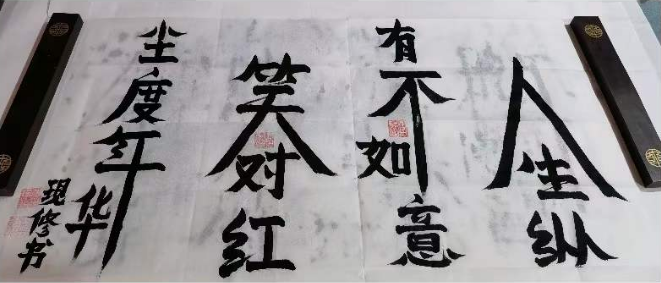 人生纵
有不如意
笑对红
尘度红华
现修书